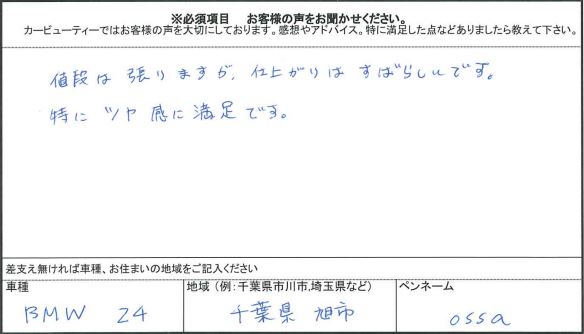 ※必須項目　お客様の声をお聞かせください。
カービューティーではお客様の声を大切にしております。感想やアドバイス。特に満足した点などありましたら教えて下さい。
値段は張りますが、仕上がりはすばらしいです。
特にツヤ感に満足です。
差支え無ければ車種、お住まいの地域をご記入ください
車種　地域（例：千葉県市川市,埼玉県など）　ペンネーム
BMW Z4　千葉県 旭市　ossa